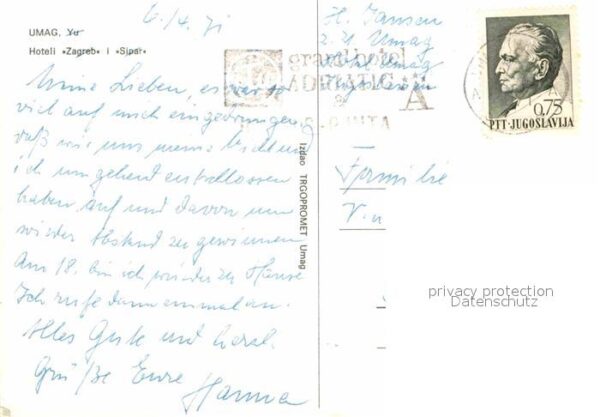 6/4. 71
UMAG, Yu
Hoteli «Zagreb» i «Sipar»
Meine Lieben, es war so
viel auf mich eingedrungen,
daß wir uns meine
ich umgehend entschlossen
haben auf und davon um
wieder Abstand zu gewinnen
Am 18. bin ich wieder zu Hause
Ich rufe dann einmal an.
Alles Gute und herzl.
Grüße Eure
Hanna
Izdao TRGOPROMET Umag
H. Jansen
z. Zt Umag
Jugoslavien
grand hotel
ADRIATIC
A
0.75
PTT-JUGOSLAVIJA
Familie
privacy protection
Datenschutz